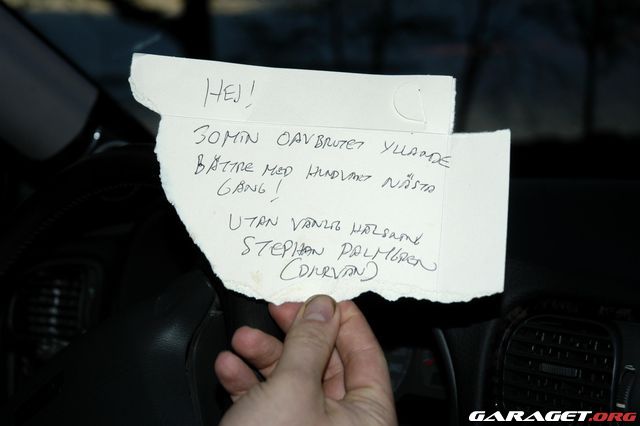 HEJ!
30 MIN OAVBRUTET YLLANDE
BÄTTRE MED HUNDVAKT NÄSTA
GÅNG!
UTAN VÄNLIG HÄLSNING
STEPHAN PALMGREN
(DJURVÄN)
GARAGET.ORG